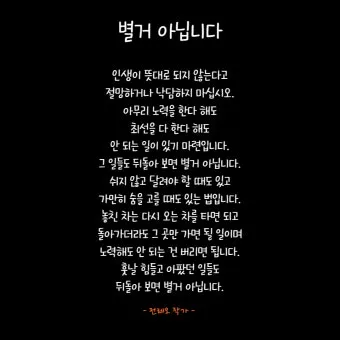 별거 아닙니다
인생이 뜻대로 되지 않는다고
절망하거나 낙담하지 마십시오.
아무리 노력을 한다 해도
최선을 다 한다 해도
안 되는 일이 있기 마련입니다.
그 일들도 뒤돌아 보면 별거 아닙니다.
쉬지 않고 달려야 할 때도 있고
가만히 숨을 고를 때도 있는 법입니다.
놓친 차는 다시 오는 차를 타면 되고
돌아가더라도 그 곳만 가면 될 일이며
노력해도 안 되는 건 버리면 됩니다.
훗날 힘들고 아팠던 일들도
뒤돌아 보면 별거 아닙니다.
- 전태오 작가 -